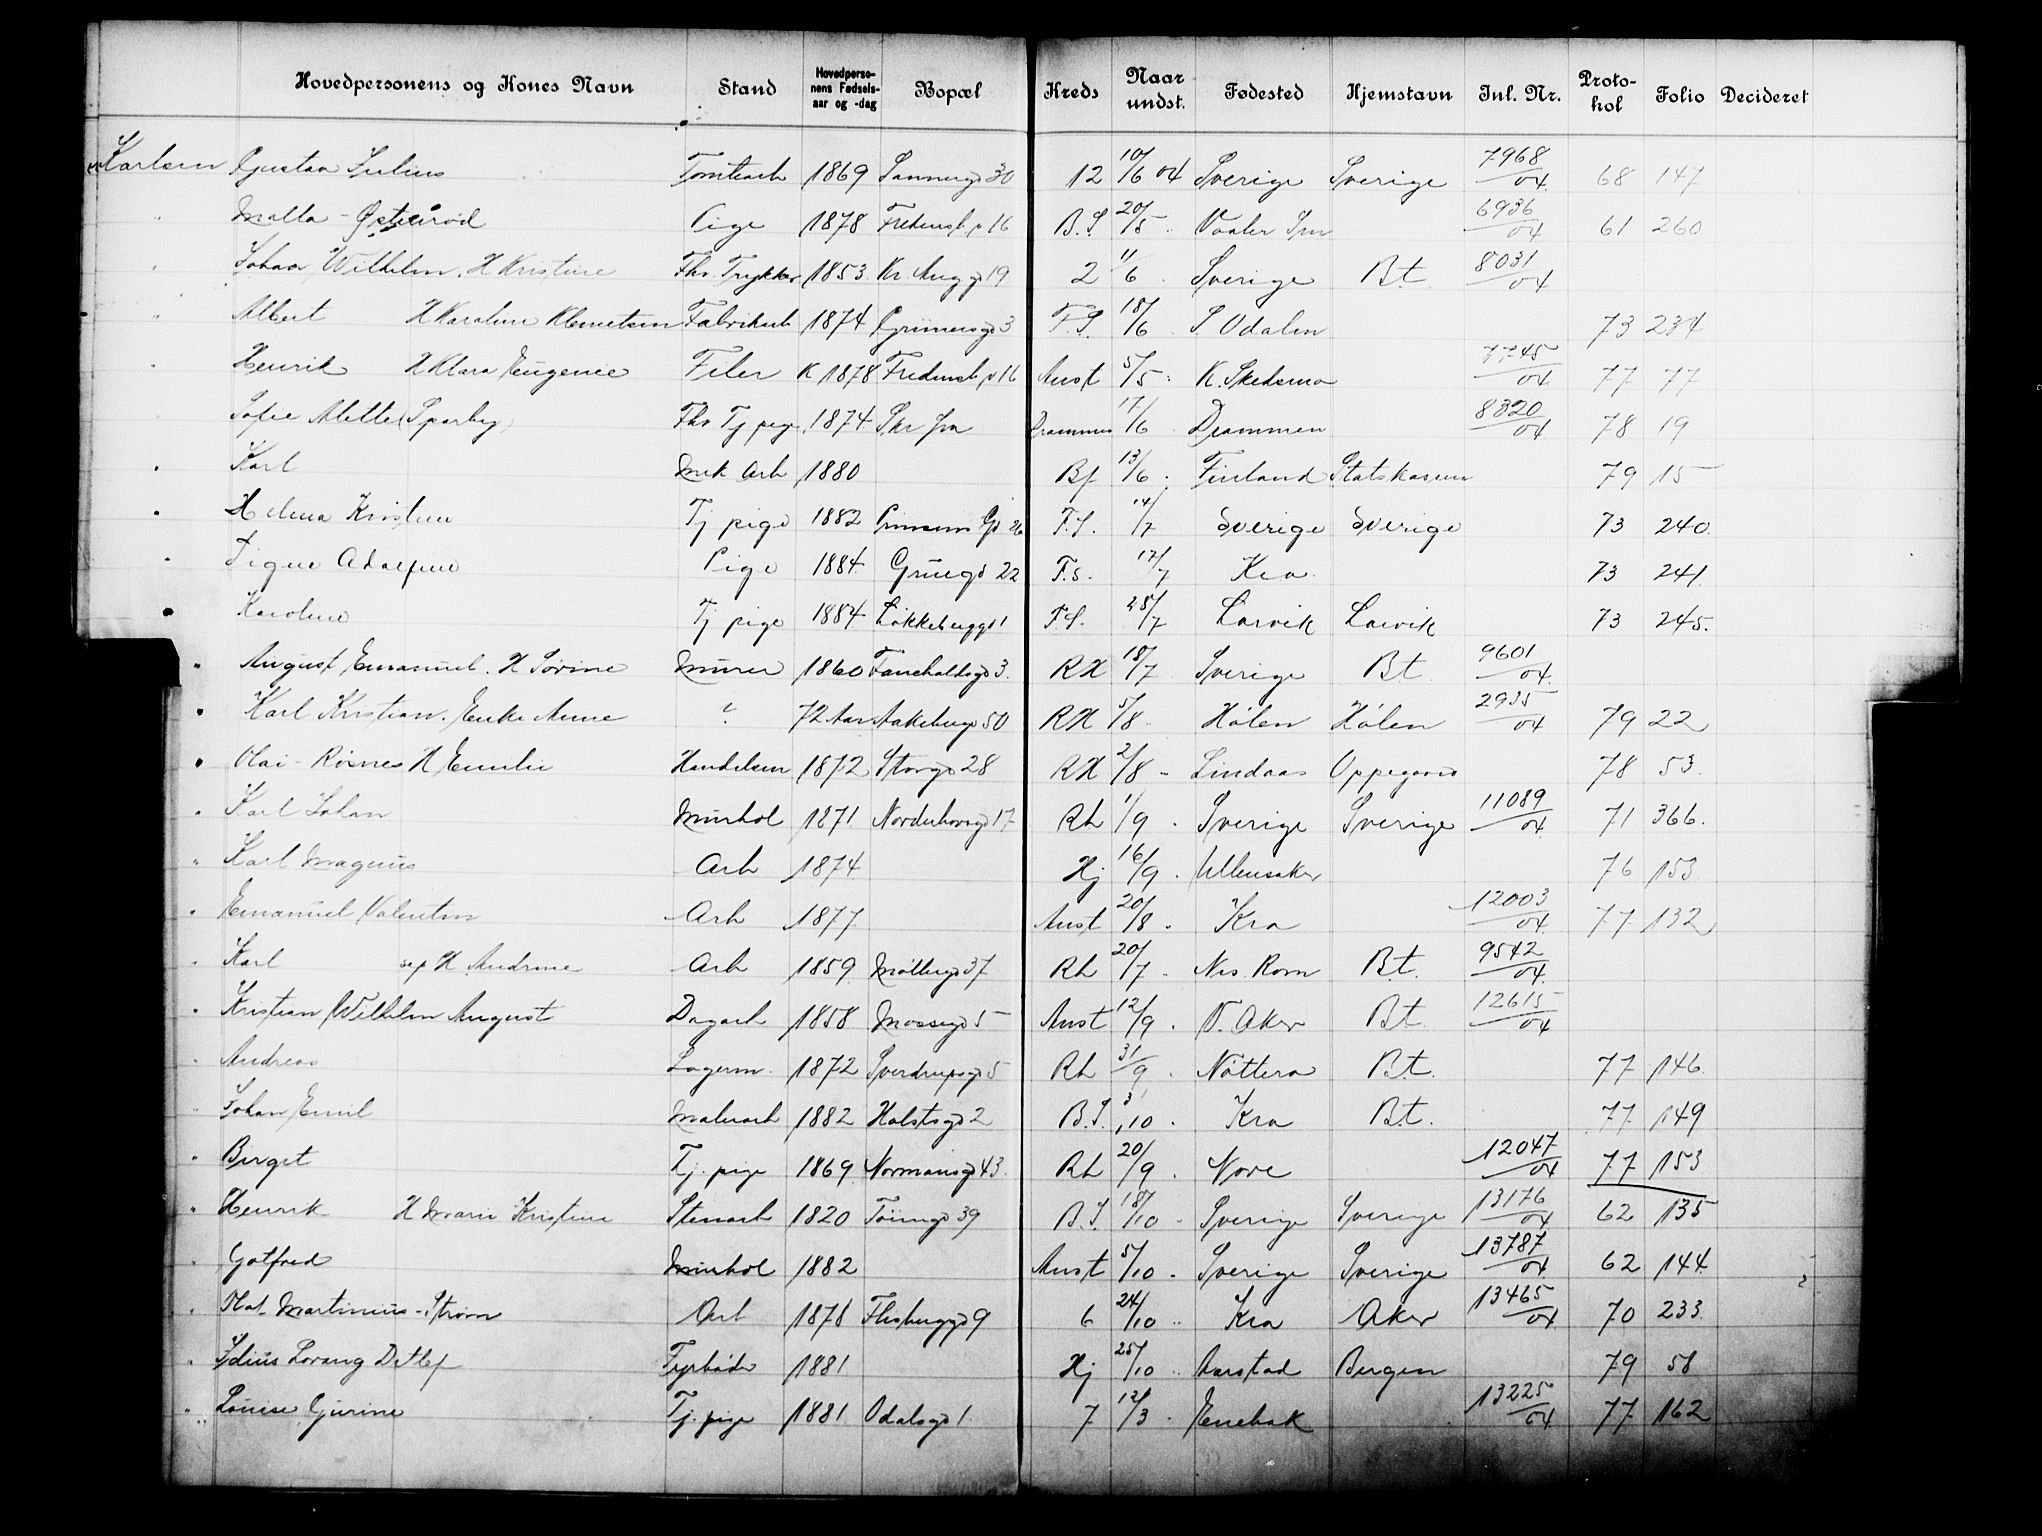 Hovedpersonens og Kones Navn Stand Hovedpersonens Fødselsaar og -dag Bopæl Kreds Naar undst. Fødested Hjemstavn Inl. Nr. Protokol Folio Decideret
Karlsen Gustav Julius Tomtearb 1869 Sannergd 30 12 10/6 04 Sverige Sverige 7968/04 68 147
" Malla - Østerrød Pige 1878 Fredensb.v 16 B.S. 20/5 Vaaler Sm 6936/04 61 260
" Johan Wilhelm. H Kristine Fhv. Trykker 1853 Kr. Aug gd 19 2 11/6 Sverige B.t. 8031/04
" Albert H Karoline Klemetsen Fabrikarb 1874 Grünersgd 3 F.S. 18/6 S. Odalen 73 234
" Henrik H Klara Eugenie Filer K 1878 Fredensb.v 16 Aust 5/5 K. Skedsmo 7745/04 77 77
Sofie Alette (Sparby) Fhv Tj pige 1874 Drammen 17/6 Drammen 8320/04 78 19
" Karl Mek Arb 1880 Bf 13/6 Finland Statskassen 79 15
" Helena Kristine Tj pige 1882 Prinsens Gd 26 F.S. 14/7 Sverige Sverige 73 240.
" Signe Adolfine Pige 1884 Gruegd 22 F.S. 17/7 Kra. 73 241.
" Karoline Tj pige 1884 Løkkebergd 1 F.S. 28/7 Larvik Larvik 73 245.
" August Emanuel. H Sørine Murer 1860 Fauchaldsgd 3. RH 18/7 Sverige B.t. 9601/04
" Karl Kristian. Enke Anne " 72 Aar Aakebergd 50 RH 5/8 Hølen Hølen 2935/04 79 22
" Olai - Røsnes H Emilie Handelsm 1872 Storgd 28 RH 2/8 - Lindaas Oppegaard 78 53.
" Karl Johan Murhdl 1871 Norderhovgd 17 Rh 1/9 . Sverige Sverige 11089/04 71 366.
" Karl Magnus Arb 1874 Hj 16/9 . Ullensaker 76 153
" Emanuel Valentin Arb 1877. Aust 20/8 . Kra 12003/04 77 132
" Karl sep H. Andrine Arb 1859 Møllergd 37 Rh 20/7 . Nes Rom B.t. 9542/04
" Kristian Wilhelm August Dagarb 1858 Mossegd 5 Aust 12/9 . V. Aker B.t. 12615/04
" Andreas Lagerm. 1872 Sverdrupsgd 5 Rh 31/9 . Nøtterø B.t. 77 146
" Johan Emil Malerarb 1882 Holstsgd 2 B.S. 3/10 . Kra B.t. 77 149
" Birget Tj. pige 1869 Normansgd 43. Rh 20/9 . Nore 12047/04 77 153
" Henrik H Marie Kristine Stenarb 1820 Tøiengd 39 B.S. 18/10 - Sverige Sverige 13176/04 62 135
" Gotfred Murhdl 1882 Aust 5/10 . Sverige Sverige 13787/04 62 144.
" Olaf Martinius - Strøm Arb 1878 Flisberggd 9 6 24/10 " Kra Aker 13465/04 70 233
" Julius Lorang Detlef Fyrbøder 1881 Hj 25/10 " Aarstad Bergen 79 58
" Louise Gurine Tj. pige 1881 Odalsgd 1. 7 12/3 . Enebak 13225/04 77 162